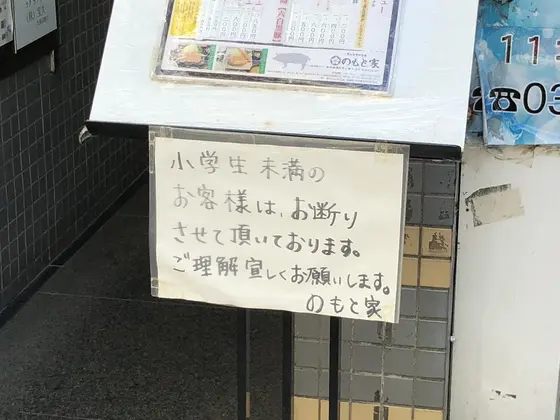 のもと家
11.
☎03
小学生未満の
お客様は、お断り
させて頂いております。
ご理解宜しくお願いします。
のもと家